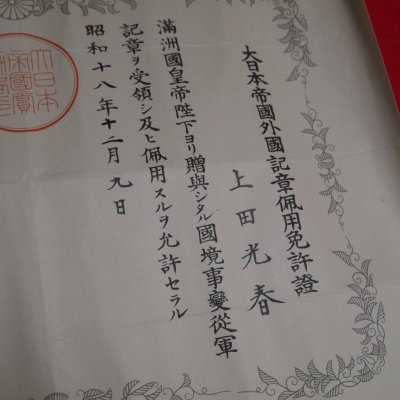 大日本帝國外國記章佩用免許證
上田光春
滿洲國皇帝陛下ヨリ贈與シタル國境事變從軍
記章ヲ受領シ及ヒ佩用スルヲ允許セラル
昭和十八年十二月九日
大日本